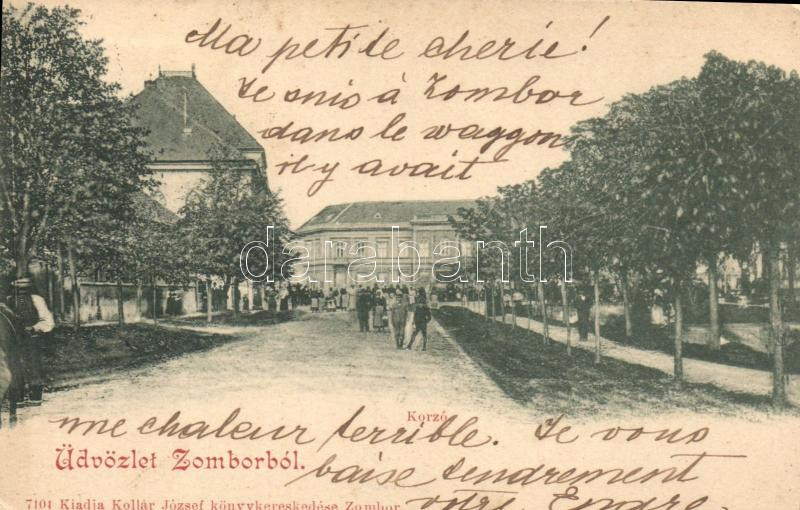 Ma petite cherie!
Je suis á Zombor
dans le waggon
il y avait
darabanth
Korzó
une chaleur terrible. Je vous
Üdvözlet Zomborból.
baise tendrement
7104 Kiadja Kollár József könyvkereskedése Zombor
vôtre